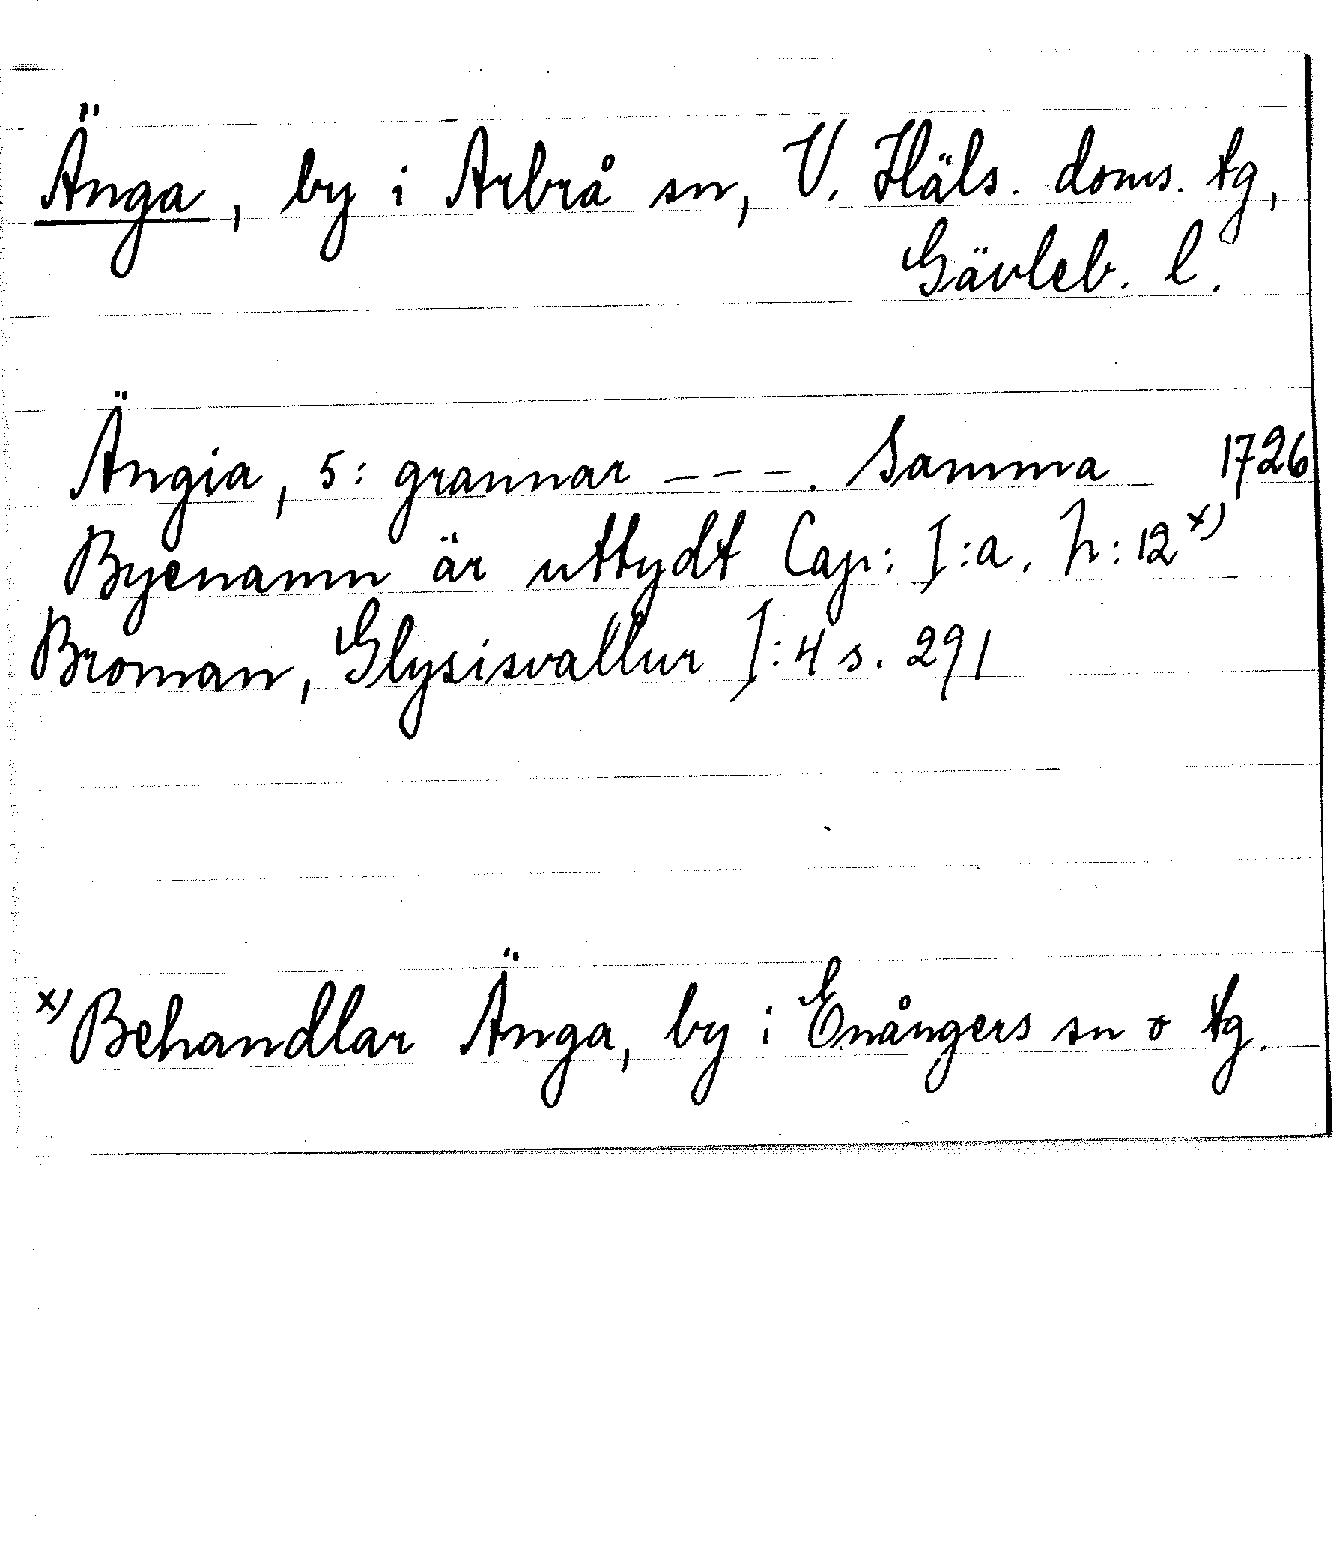 Änga, by i Arbrå sn, V. Häls. doms. tg,
Gävleb. l.
Ängia, 5: grannar ---. Samma 1726
Byenamn är uttydt Cap: I:a. h: 12 x)
Broman, Glysisvallur I:4 s. 291
x) Behandlar Änga, by i Enångers sn o tg.